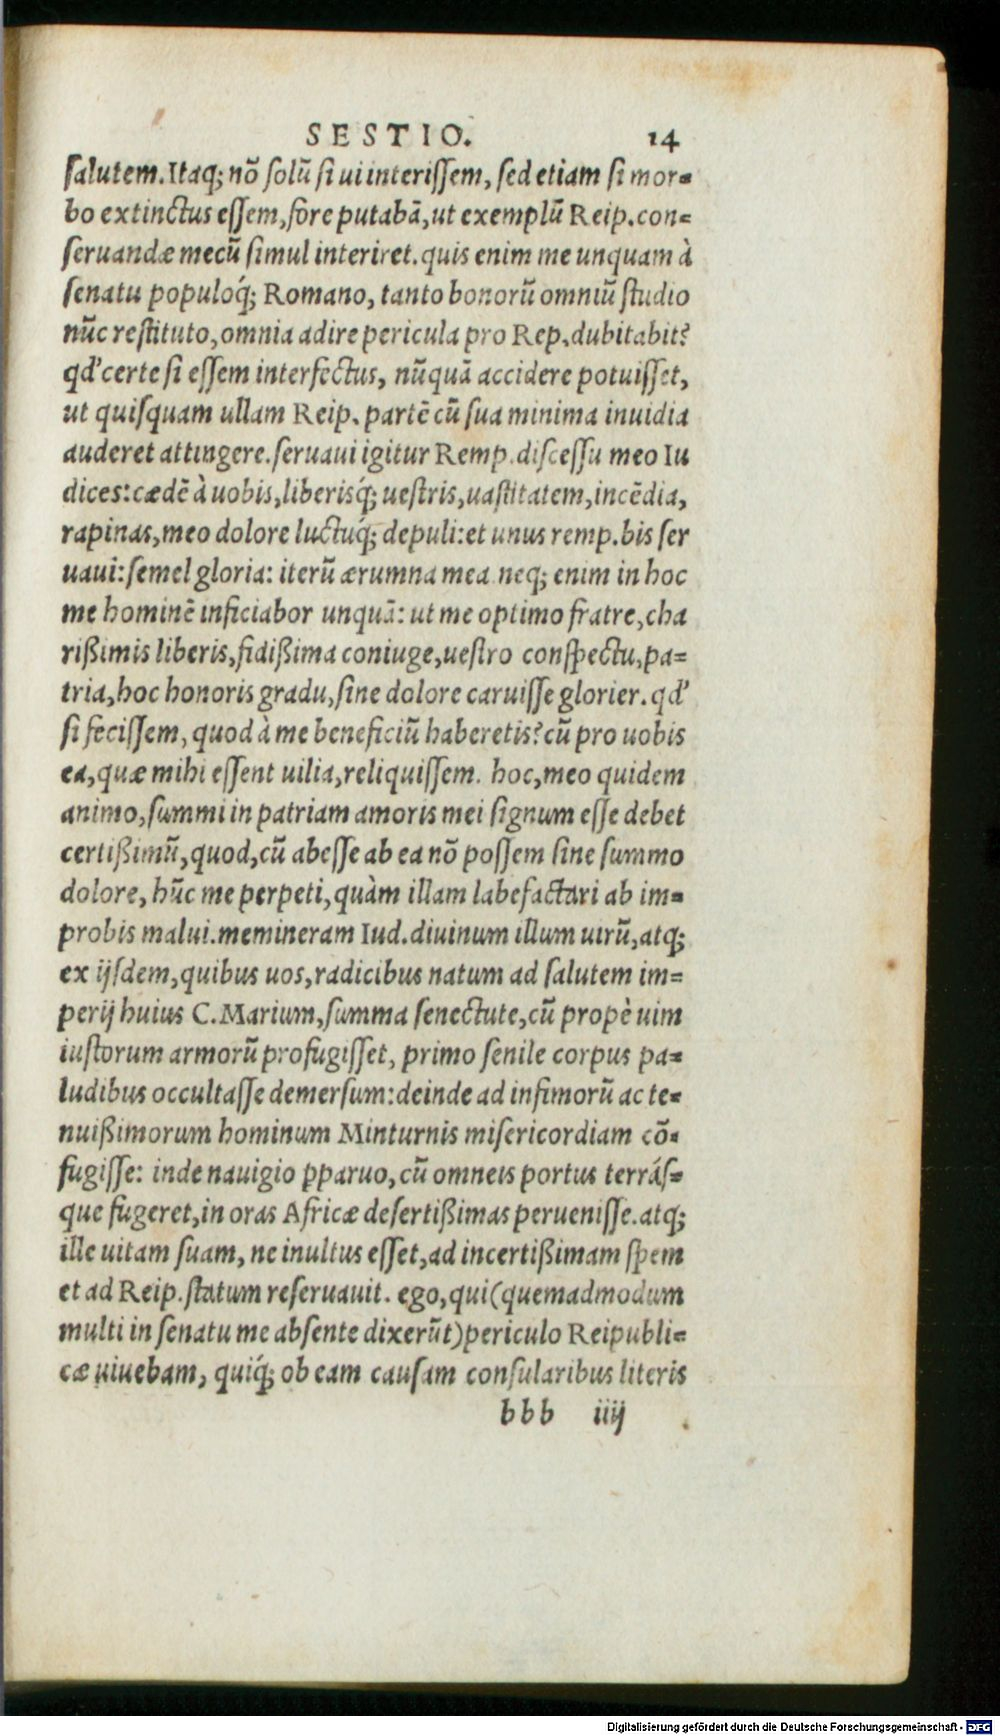 SESTIO. 14
salutem. Itaq; nō solū si ui interissem, sed etiam si mor-
bo extinctus essem, fore putabā, ut exemplū Reip. con-
seruandæ mecū simul interiret. quis enim me unquam à
senatu populoq́; Romano, tanto bonorū omniū studio
nūc restituto, omnia adire pericula pro Rep. dubitabit?
qd' certe si essem interfectus, nūquā accidere potuisset,
ut quisquam ullam Reip. partē cū sua minima inuidia
auderet attingere. seruaui igitur Remp. discessu meo Iu
dices: cædē à uobis, liberisq́; uestris, uastitatem, incēdia,
rapinas, meo dolore luctuq́; depuli: et unus remp. bis ser
uaui: semel gloria: iterū ærumna mea neq; enim in hoc
me hominē inficiabor unquā: ut me optimo fratre, cha
rißimis liberis, fidißima coniuge, uestro conspectu, pa-
tria, hoc honoris gradu, sine dolore caruisse glorier. qd'
si fecissem, quod à me beneficiū haberetis? cū pro uobis
ea, quæ mihi essent uilia, reliquissem. hoc, meo quidem
animo, summi in patriam amoris mei signum esse debet
certißimū, quod, cū abesse ab ea nō possem sine summo
dolore, hūc me perpeti, quàm illam labefactari ab im-
probis malui. memineram Iud. diuinum illum uirū, atq;
ex ijsdem, quibus uos, radicibus natum ad salutem im-
perij huius C. Marium, summa senectute, cū propè uim
iustorum armorū profugisset, primo senile corpus pa-
ludibus occultasse demersum: deinde ad infimorū ac te-
nuißimorum hominum Minturnis misericordiam cō-
fugisse: inde nauigio ꝑparuo, cū omneis portus terrás-
que fugeret, in oras Africæ desertißimas peruenisse. atq;
ille uitam suam, ne inultus esset, ad incertißimam spem
et ad Reip. statum reseruauit. ego, qui (quemadmodum
multi in senatu me absente dixerūt) periculo Reipubli-
cæ uiuebam, quiq́; ob eam causam consularibus literis
bbb iiij
Digitalisierung gefördert durch die Deutsche Forschungsgemeinschaft - DFG